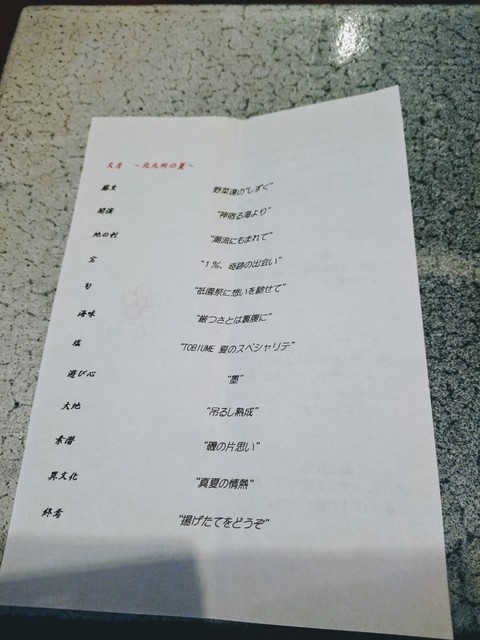 文月 ～北九州の夏～
蘇生 "野菜達の"しずく"
開演 "神宿る海より"
地の利 "潮流にもまれて"
宝 "1%、奇跡の出会い"
旬 "祇園祭に想いを馳せて"
海味 "厳つさとは裏腹に"
塩 "TOBIUME 夏のスペシャリテ"
遊び心 "墨"
大地 "吊るし熟成"
素潜 "磯の片思い"
異文化 "真夏の情熱"
終焉 "揚げたてをどうぞ"